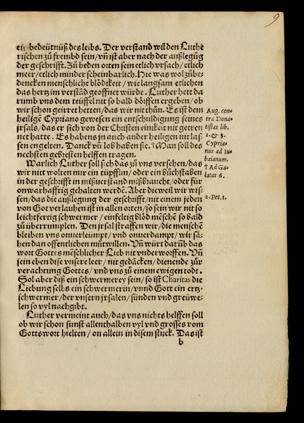 9
ein bedeütnüß des leibs. Der verstand wil den Luthe
rischen zů frembd sein/ vn̄ ist aber nach der außlegūg
der geschrifft. Zů beden orten sein etlich vrsach/ etlich
meer/ etlich minder scheinbarlich. Die was wol zůbe
dencken menschliche blödikeit/ wie langsam etlichen
das hertz im verstād geöffnet würde. Luther hett da
rumb vns dem teüffel nit so bald dörffen ergeben/ ob
wir schon geirret hetten/ das wir nit thůn. Es ist dem
heilige Cypriano gewesen ein entschuldigung seines
jrsals/ das er sich von der Christen einkeit nit getren
net hatte. Es habens jn auch ander heiligen nit las
sen engelten. Danck vn̄ lob haben sie. Man soll des
nechsten gebresten helffen tragen.
Aug. con
tra Dona
tistas lib.
1. & 3.
Cypria-
nus ad Iu
baianum.
Ad Ga
latas 6.
Warlich Luther soll sich das zů vns versehen/ das
wir nit wolten nur ein tüpfflin/ oder ein bůchstaben
in der geschrifft můssiret haben/
vnwarhafftig gehalten werde. Aber dieweil wir wis
sen/ das die außlegung der geschrifft/ nit einem jeden
von Got verlauhen ist in allen orten/ so sein wir nit so
leichtfertig schwermer/ einfeltig blöd mēschē so bald
zů überrumplen. Den jrsal straffen wir/ die mensche
bleiben vns vnuerleümpt/ vnd onuerdampt/ wir sä
hen dan offentlichen můtwillen. Vn̄ würt darūb das
wott Gotts mēschlicher Lieb nit vnderworffen. Vn̄
sein eben dise vnsere leer/ nit gedäcken/ dienende zůr
verachtung Gottes/ vnd vns zů einem ewigen todt.
Sol aber diß ein schwermerey sein/ so ist Charitas die
Liebung selbs ein schwermerin/ vnnd Gott ein ertz
schwermer/ der vnsern jrsalen/ sünden vnd greüwe
len so vyl nachgibt.
2. Pet. 1.
Luther vermeint auch/ das vns nichts helffen soll
ob wir schon sunst allenthalben vyl vnd grosses vom
Gotts wott hielten/ on allein in disem stuck. Das ist
b